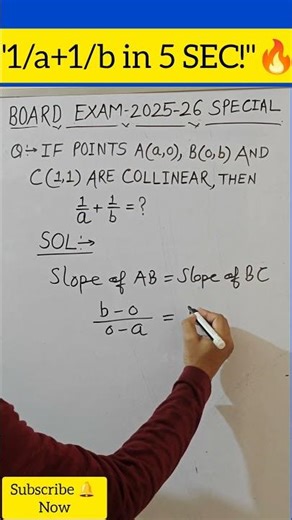 "1/a+1/b in 5 SEC!"🔥
BOARD EXAM-2025-26 SPECIAL
Q:→ IF POINTS A(a,0), B(0,b) AND
C(1,1) ARE COLLINEAR, THEN
1/a + 1/b = ?
SOL:→
Slope of AB = Slope of BC
b-0/0-a =
Subscribe 🔔
Now